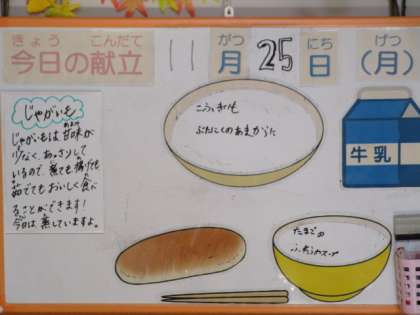 きょう こんだて がつ にち げつ
今日の献立 11月25日(月)
じゃがいも
じゃがいもは甘味が
少なく、あっさりして
いるので、煮ても揚げても
茹ででもおいしく食べ
ることができます！
今日は蒸していますよ。
こふきいも
ぶたにくのあまからに
牛乳
たまごの
スープ